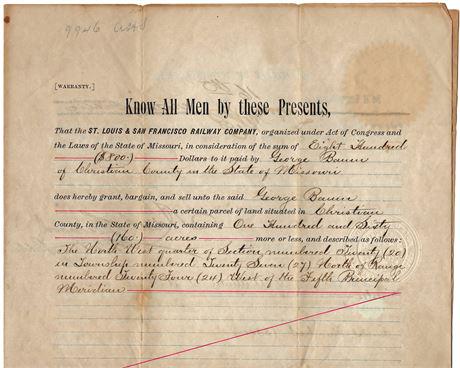 9946
[WARRANTY.]
Know All Men by these Presents,
That the ST. LOUIS & SAN FRANCISCO RAILWAY COMPANY, organized under Act of Congress and
the Laws of the State of Missouri, in consideration of the sum of Eight Hundred
($800.) Dollars to it paid by George
of Christian County in the State of Missouri
does hereby grant, bargain, and sell unto the said George
a certain parcel of land situated in Christian
County, in the State of Missouri, containing One Hundred and Sixty
(160) acres more or less, and described as follows:
The North West quarter of Section numbered Twenty (20)
in Township numbered Twenty Seven (27) North of Range
numbered Twenty Four (24) West of the Fifth Principal
Meridian